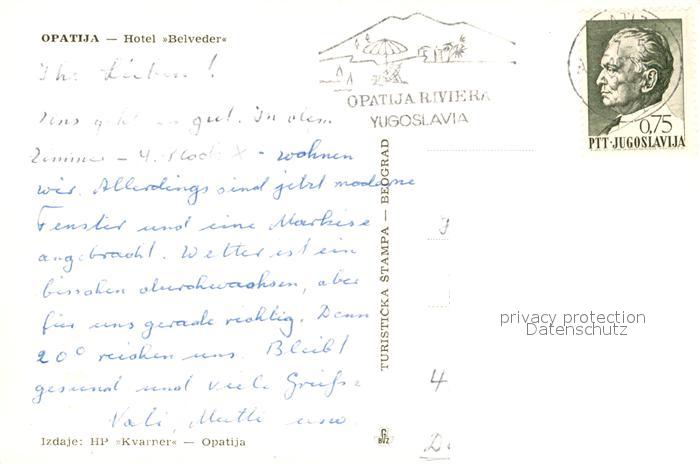 OPATIJA — Hotel »Belveder«
Ihr Lieben!
Uns geht es gut. In dem
Zimmer - 4. Stock X - wohnen
wir. Allerdings sind jetzt moderne
Fenster und eine Markise
angebracht. Wetter ist ein
bisschen durchwachsen, aber
für uns gerade richtig. Denn
20° reichen uns. Bleibt
gesund und viele Grüsse
Vati, Mutti usw.
Izdaje: HP »Kvarner« — Opatija
TURISTIČKA ŠTAMPA — BEOGRAD
G
BVZ
OPATIJA RIVIERA
YUGOSLAVIA
0,75
PTT·JUGOSLAVIJA
privacy protection
Datenschutz
4
D